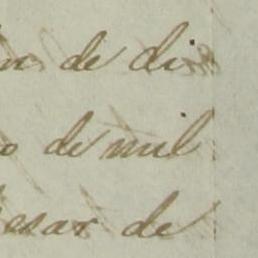 de di
o de mil
esar de